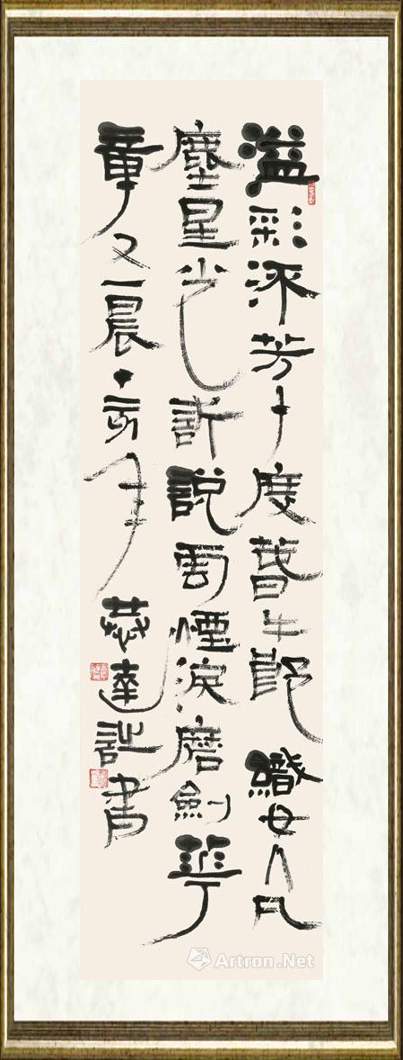 溢彩流芳十度春牛郎織女入凡
塵星光訴說雲煙淚磨劍華
章又一晨丁亥年恭達詩書
Artron.Net